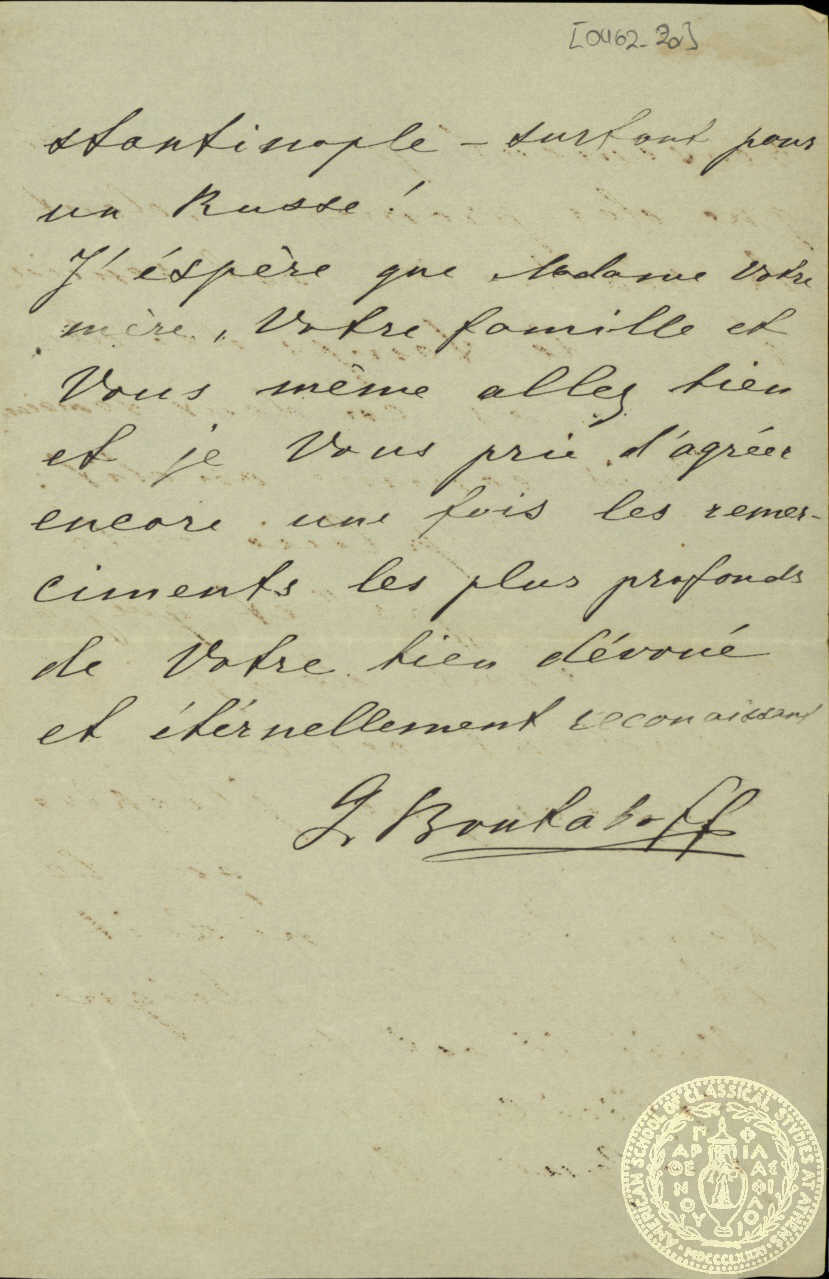 [0462-2α]
stantinople – surtout pour
un Russe!
J'éspère que Madame Votre
mère, Votre famille et
Vous même allez bien
et je Vous prie d'agréer
encore une fois les remer-
ciments les plus profonds
de Votre bien dévoué
et étérnellement reconaissant
G. Boutakoff
AMERICAN SCHOOL OF CLASSICAL STUDIES AT ATHENS
ΠΑΡΘΕΝΟΥ ΦΙΛΑΣ ΦΙΛΟΙ
MDCCCLXXXI